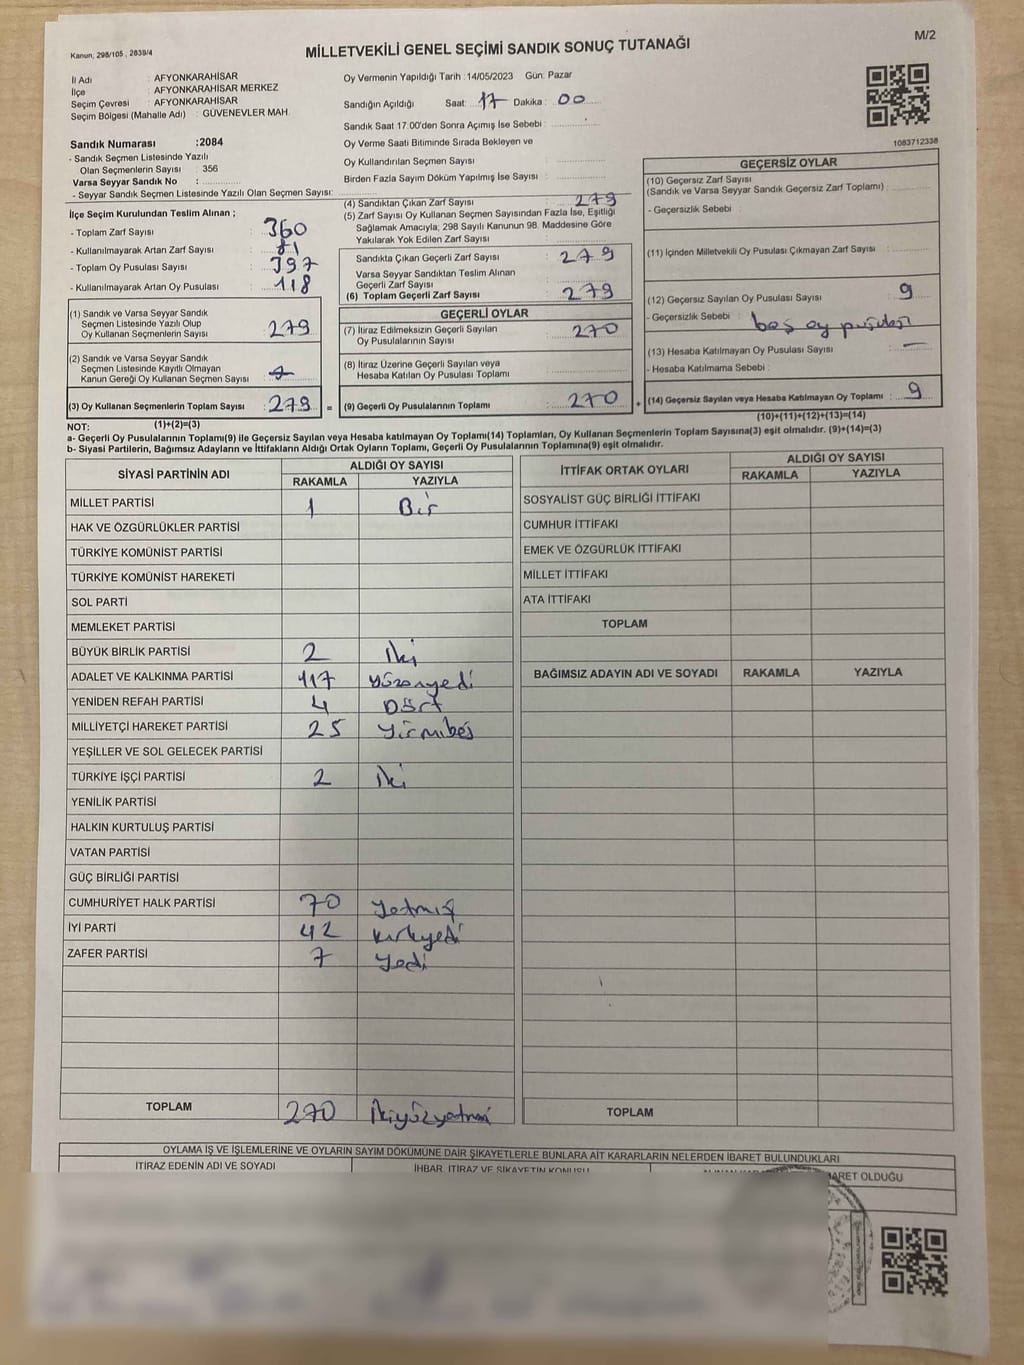 Kanun, 298/105 , 2839/4
MİLLETVEKİLİ GENEL SEÇİMİ SANDIK SONUÇ TUTANAĞI
M/2
İl Adı : AFYONKARAHİSAR
İlçe : AFYONKARAHİSAR MERKEZ
Seçim Çevresi : AFYONKARAHİSAR
Seçim Bölgesi (Mahalle Adı) : GÜVENEVLER MAH.
Sandık Numarası :2084
- Sandık Seçmen Listesinde Yazılı
Olan Seçmenlerin Sayısı : 356
Varsa Seyyar Sandık No :
- Seyyar Sandık Seçmen Listesinde Yazılı Olan Seçmen Sayısı:
Oy Vermenin Yapıldığı Tarih :14/05/2023 Gün: Pazar
Sandığın Açıldığı Saat: 17 Dakika : 00
Sandık Saat 17.00'den Sonra Açımış İse Sebebi :
Oy Verme Saati Bitiminde Sırada Bekleyen ve
Oy Kullandırılan Seçmen Sayısı :
Birden Fazla Sayım Döküm Yapılmış İse Sayısı :
1083712338
İlçe Seçim Kurulundan Teslim Alınan ;
- Toplam Zarf Sayısı : 360
- Kullanılmayarak Artan Zarf Sayısı : 81
- Toplam Oy Pusulası Sayısı : 397
- Kullanılmayarak Artan Oy Pusulası : 118
(1) Sandık ve Varsa Seyyar Sandık
Seçmen Listesinde Yazılı Olup
Oy Kullanan Seçmenlerin Sayısı : 279
(2) Sandık ve Varsa Seyyar Sandık
Seçmen Listesinde Kayıtlı Olmayan
Kanun Gereği Oy Kullanan Seçmen Sayısı :
(3) Oy Kullanan Seçmenlerin Toplam Sayısı : 279 =
(1)+(2)=(3)
(4) Sandıktan Çıkan Zarf Sayısı : 279
(5) Zarf Sayısı Oy Kullanan Seçmen Sayısından Fazla İse, Eşitliği
Sağlamak Amacıyla, 298 Sayılı Kanunun 98. Maddesine Göre
Yakılarak Yok Edilen Zarf Sayısı :
Sandıkta Çıkan Geçerli Zarf Sayısı : 279
Varsa Seyyar Sandıktan Teslim Alınan
Geçerli Zarf Sayısı :
(6) Toplam Geçerli Zarf Sayısı : 279
GEÇERLİ OYLAR
(7) İtiraz Edilmeksizin Geçerli Sayılan
Oy Pusulalarının Sayısı : 270
(8) İtiraz Üzerine Geçerli Sayılan veya
Hesaba Katılan Oy Pusulası Toplamı :
(9) Geçerli Oy Pusulalarının Toplamı : 270 +
GEÇERSİZ OYLAR
(10) Geçersiz Zarf Sayısı
(Sandık ve Varsa Seyyar Sandık Geçersiz Zarf Toplamı) :
- Geçersizlik Sebebi :
(11) İçinden Milletvekili Oy Pusulası Çıkmayan Zarf Sayısı :
(12) Geçersiz Sayılan Oy Pusulası Sayısı : 9
- Geçersizlik Sebebi : boş oy pusulası
(13) Hesaba Katılmayan Oy Pusulası Sayısı : —
- Hesaba Katılmama Sebebi :
(14) Geçersiz Sayılan veya Hesaba Katılmayan Oy Toplamı : 9
(10)+(11)+(12)+(13)=(14)
NOT:
a- Geçerli Oy Pusulalarının Toplamı(9) ile Geçersiz Sayılan veya Hesaba katılmayan Oy Toplamı(14) Toplamları, Oy Kullanan Seçmenlerin Toplam Sayısına(3) eşit olmalıdır. (9)+(14)=(3)
b- Siyasi Partilerin, Bağımsız Adayların ve İttifakların Aldığı Ortak Oyların Toplamı, Geçerli Oy Pusulalarının Toplamına(9) eşit olmalıdır.
SİYASİ PARTİNİN ADI ALDIĞI OY SAYISI
RAKAMLA YAZIYLA
MİLLET PARTİSİ 1 Bir
HAK VE ÖZGÜRLÜKLER PARTİSİ
TÜRKİYE KOMÜNİST PARTİSİ
TÜRKİYE KOMÜNİST HAREKETİ
SOL PARTİ
MEMLEKET PARTİSİ
BÜYÜK BİRLİK PARTİSİ 2 İki
ADALET VE KALKINMA PARTİSİ 117 yüzonyedi
YENİDEN REFAH PARTİSİ 4 Dört
MİLLİYETÇİ HAREKET PARTİSİ 25 Yirmibeş
YEŞİLLER VE SOL GELECEK PARTİSİ
TÜRKİYE İŞÇİ PARTİSİ 2 İki
YENİLİK PARTİSİ
HALKIN KURTULUŞ PARTİSİ
VATAN PARTİSİ
GÜÇ BİRLİĞİ PARTİSİ
CUMHURİYET HALK PARTİSİ 70 Yetmiş
İYİ PARTİ 42 kırkyedi
ZAFER PARTİSİ 7 Yedi
TOPLAM 270 İkiyüzyetmiş
İTTİFAK ORTAK OYLARI ALDIĞI OY SAYISI
RAKAMLA YAZIYLA
SOSYALİST GÜÇ BİRLİĞİ İTTİFAKI
CUMHUR İTTİFAKI
EMEK VE ÖZGÜRLÜK İTTİFAKI
MİLLET İTTİFAKI
ATA İTTİFAKI
TOPLAM
BAĞIMSIZ ADAYIN ADI VE SOYADI RAKAMLA YAZIYLA
TOPLAM
OYLAMA İŞ VE İŞLEMLERİNE VE OYLARIN SAYIM DÖKÜMÜNE DAİR ŞİKAYETLERLE BUNLARA AİT KARARLARIN NELERDEN İBARET BULUNDUKLARI
İTİRAZ EDENİN ADI VE SOYADI
İHBAR, İTİRAZ VE ŞİKAYETİN KONUSU
BARET OLDUĞU